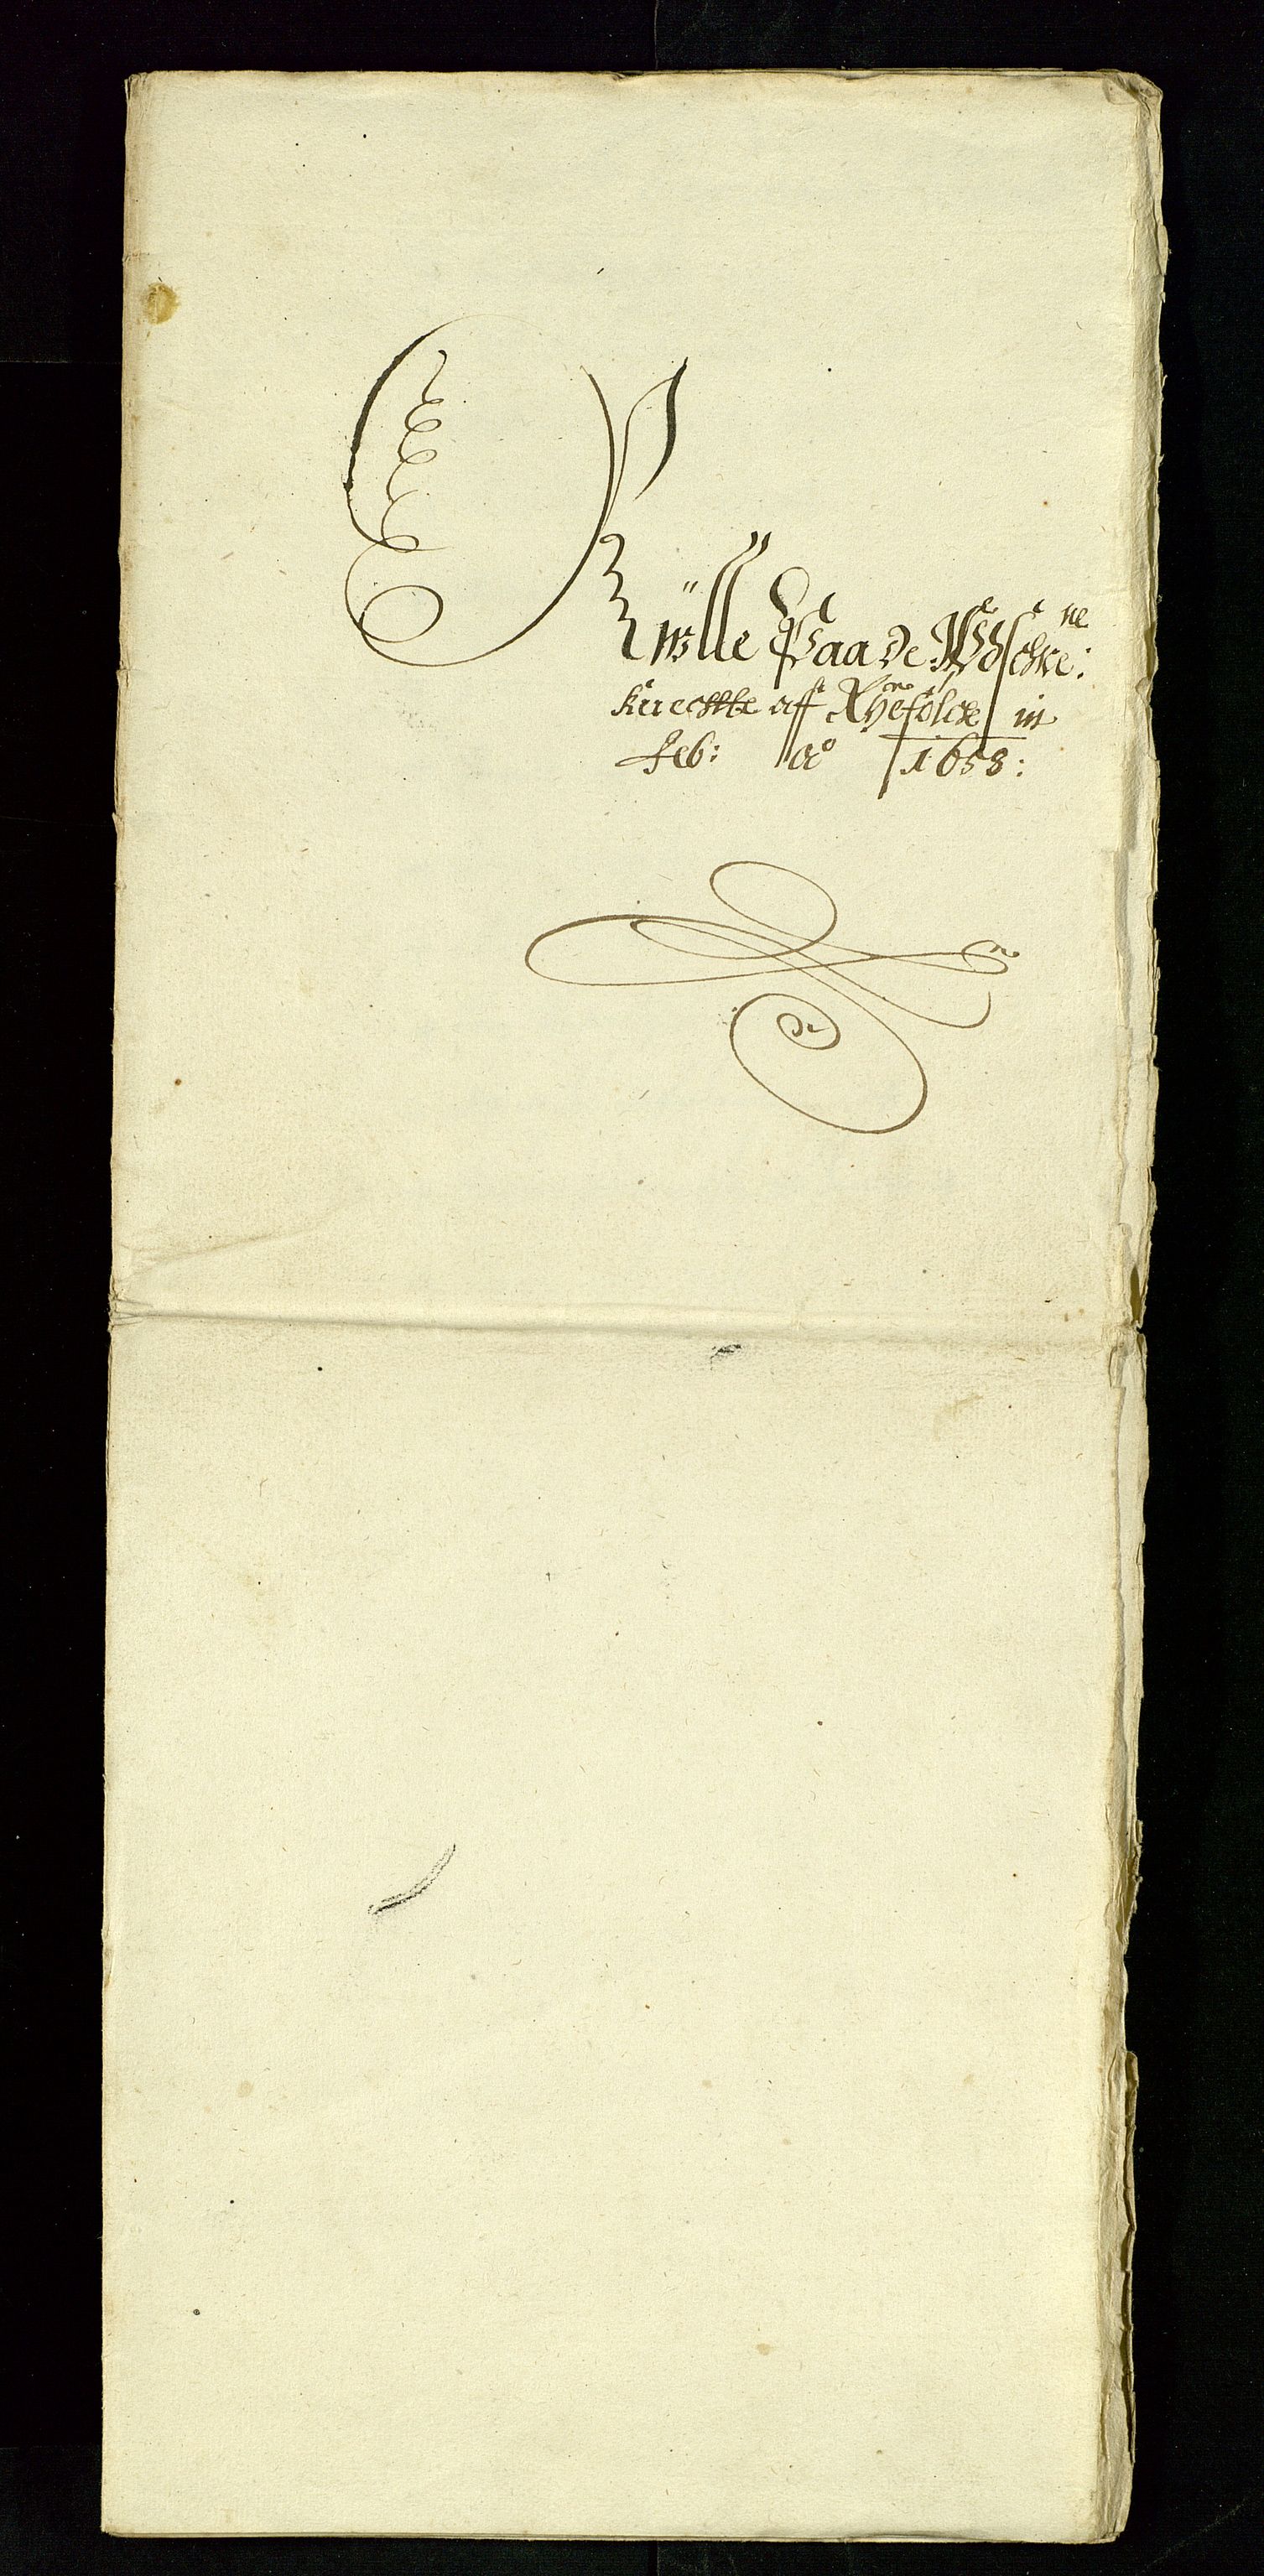 Rulle Paa de Udschre: ne
knechte aff Ryefolck in
feb: Ao 1658: